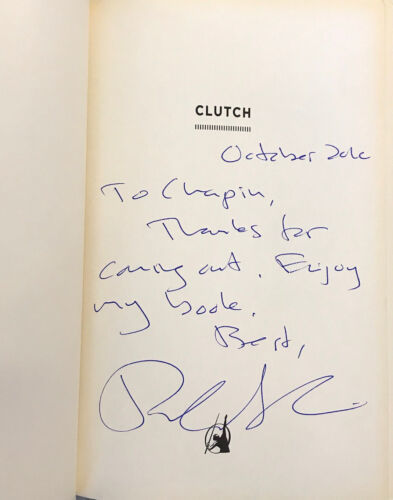 CLUTCH
October 2010
To Chapin,
Thanks for
coming out. Enjoy
my book.
Best,